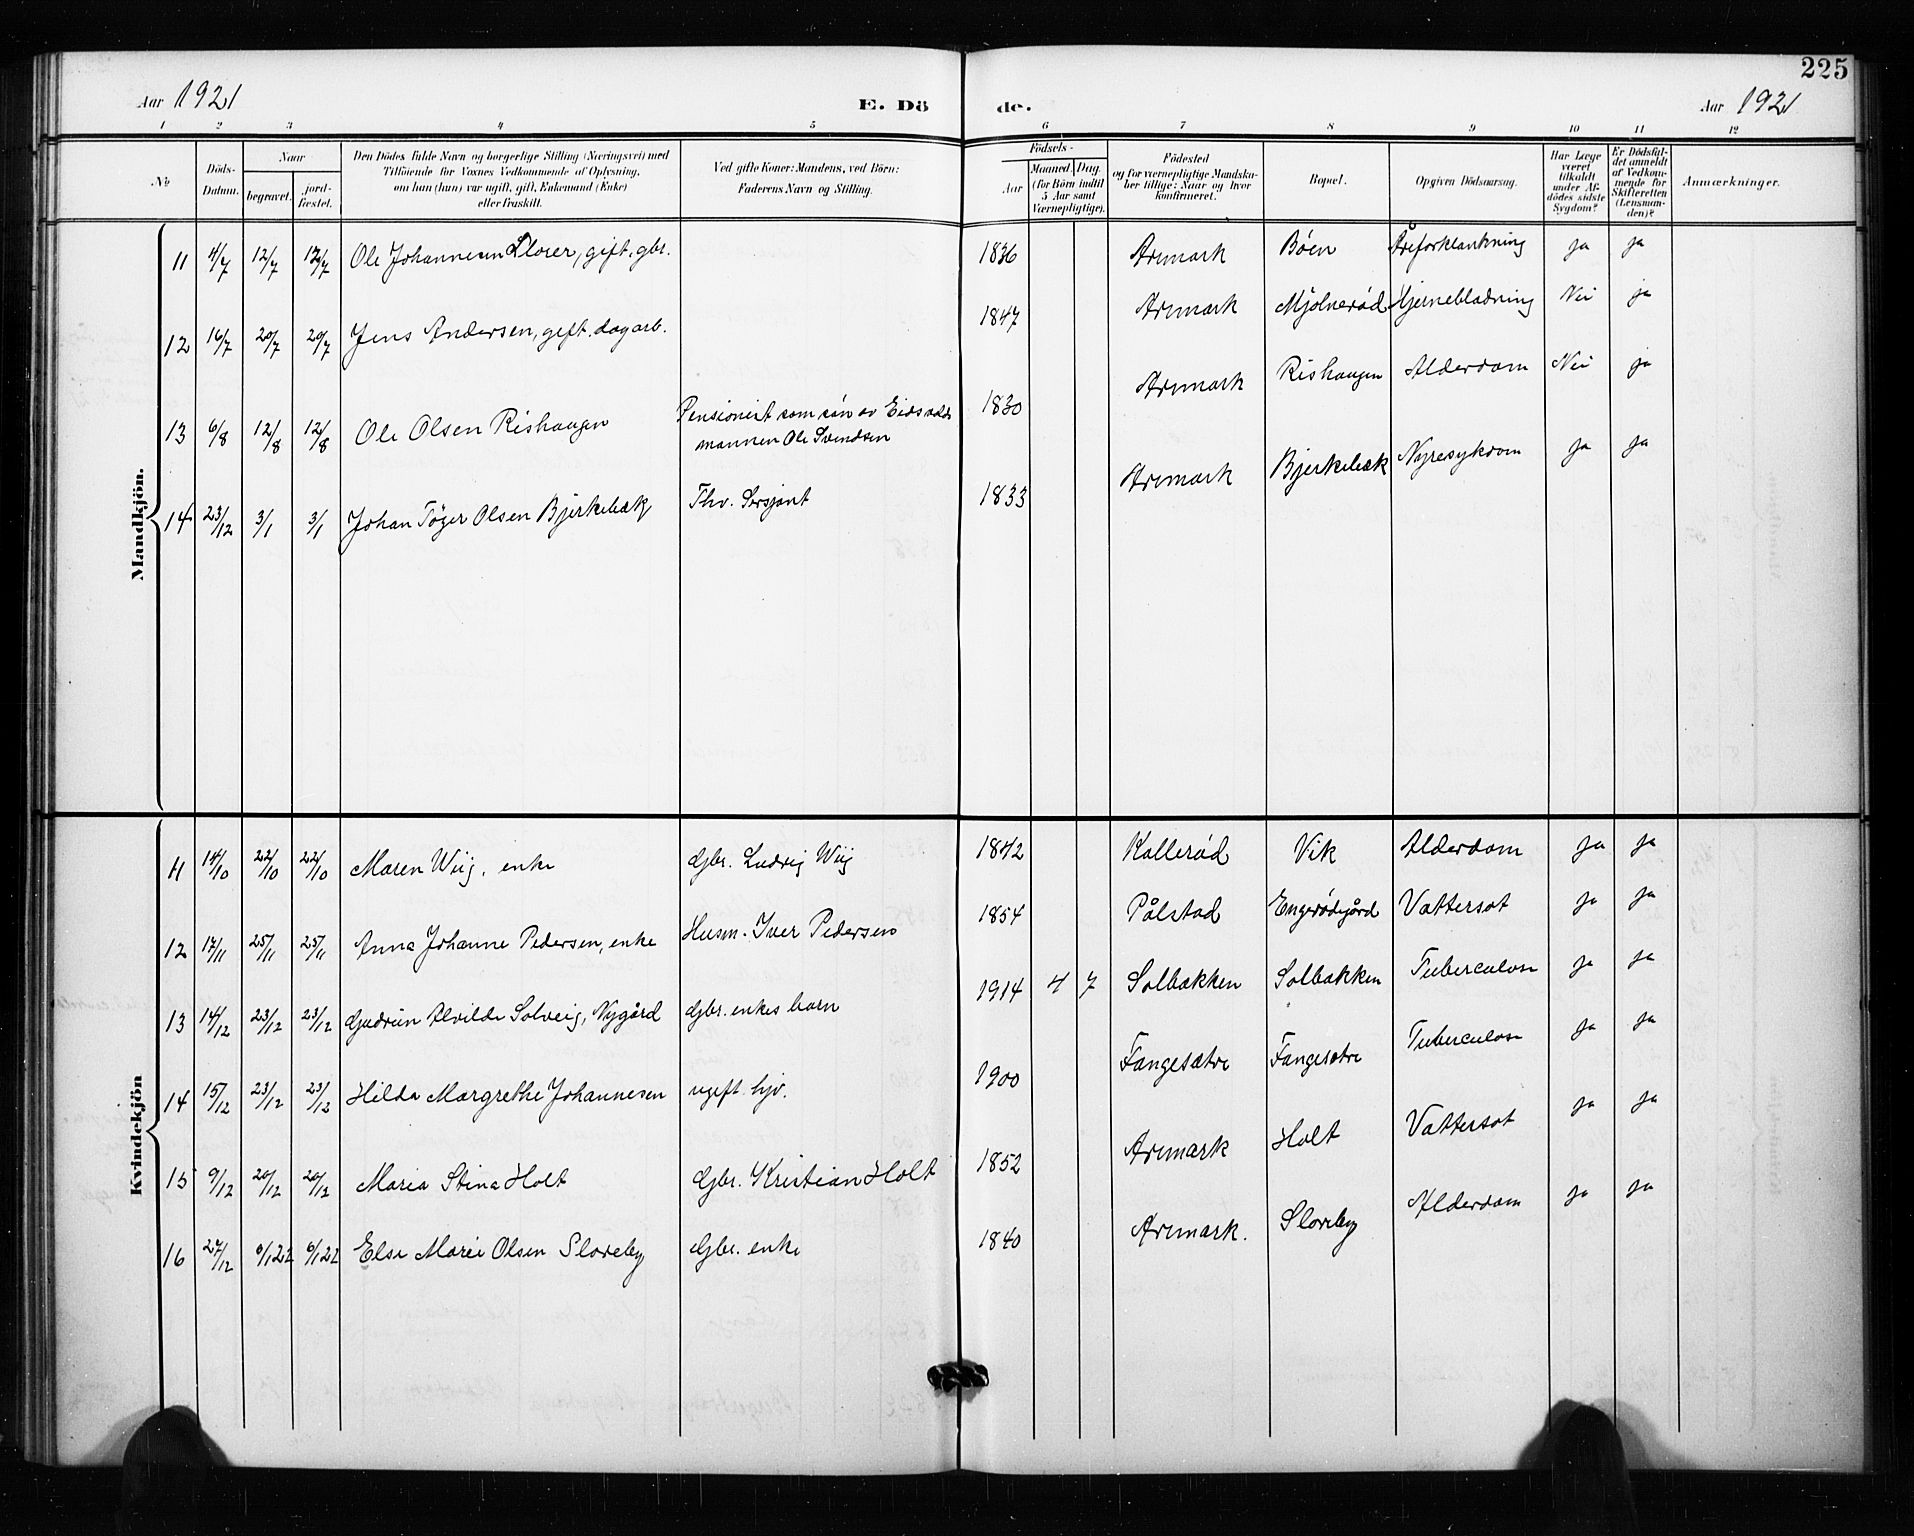 225
Aar 1921 E. Dö de. Aar 1921
1 2 3 4 5 6 7 8 9 10 11 12
No Döds-Datum. Naar begravet. jord-fæstet. Den Dödes fulde Navn og borgerlige Stilling (Næringsvei) med Tilföiende för Voxnes Vedkommende af Oplysning, om han (hun) var ugift, gift, Enkemand (Enke) eller fraskilt. Ved gifte Koner: Mandens, ved Börn: Faderens Navn og Stilling. Födsels- Aar Maaned. Dag. (for Börn indtil 5 Aar samt Værnepligtige). Födested og for værnepligtige Mandskaber tillige: Naar og hvor konfirmeret. Bopæl. Opgiven Dödsaarsag. Har Læge været tilkaldt under Afdödes sidste Sygdom? Er Dödsfaldet anmeldt af Vedkommende for Skifteretten (Lensmanden)? Anmærkninger.
Mandkjön.
11 4/7 12/7 12/7 Ole Johannesen Slorer, gift, gbr. 1836 Aremark Böen Åreforkalkning ja ja
12 16/7 20/7 20/7 Jens Andersen, gift, dagarb. 1847 Aremark Mjølnerød Hjerneblødning Nei ja
13 6/8 12/8 12/8 Ole Olsen Rishaugen Pensionist som søn av Eidsvolds mannen Ole Svendsen 1830 Aremark Rishaugen Alderdom Nei ja
14 23/12 3/1 3/1 Johan Töger Olsen Bjerkebæk Fhv. Sersjant 1833 Aremark Bjerkebæk Nyresykdom ja ja
Kvindekjön
11 14/10 22/10 22/10 Maren Wiig, enke Gbr. Ludvig Wiig 1842 Kollerød Vik Alderdom ja ja
12 17/11 25/11 25/11 Anna Johanne Pedersen, enke Husm. Iver Pedersen 1854 Pålstad Engerødegård Vattersot ja ja
13 14/12 23/12 23/12 Gudrun Alvilde Solveig, Nygård Gbr. enkes barn 1914 4 7 Solbakken Solbakken Tuberculose ja ja
14 15/12 23/12 23/12 Hilda Margrethe Johannesen ugift hjv. 1900 Fangesætre Fangesætre Tuberculose ja ja
15 9/12 20/12 20/12 Maria Stina Holt Gbr. Kristian Holt 1852 Aremark Holt Vattersot ja ja
16 27/12 6/1 22 6/1 22 Else Marie Olsen Sloreby Gbr. enke 1840 Aremark. Sloreby Alderdom ja ja